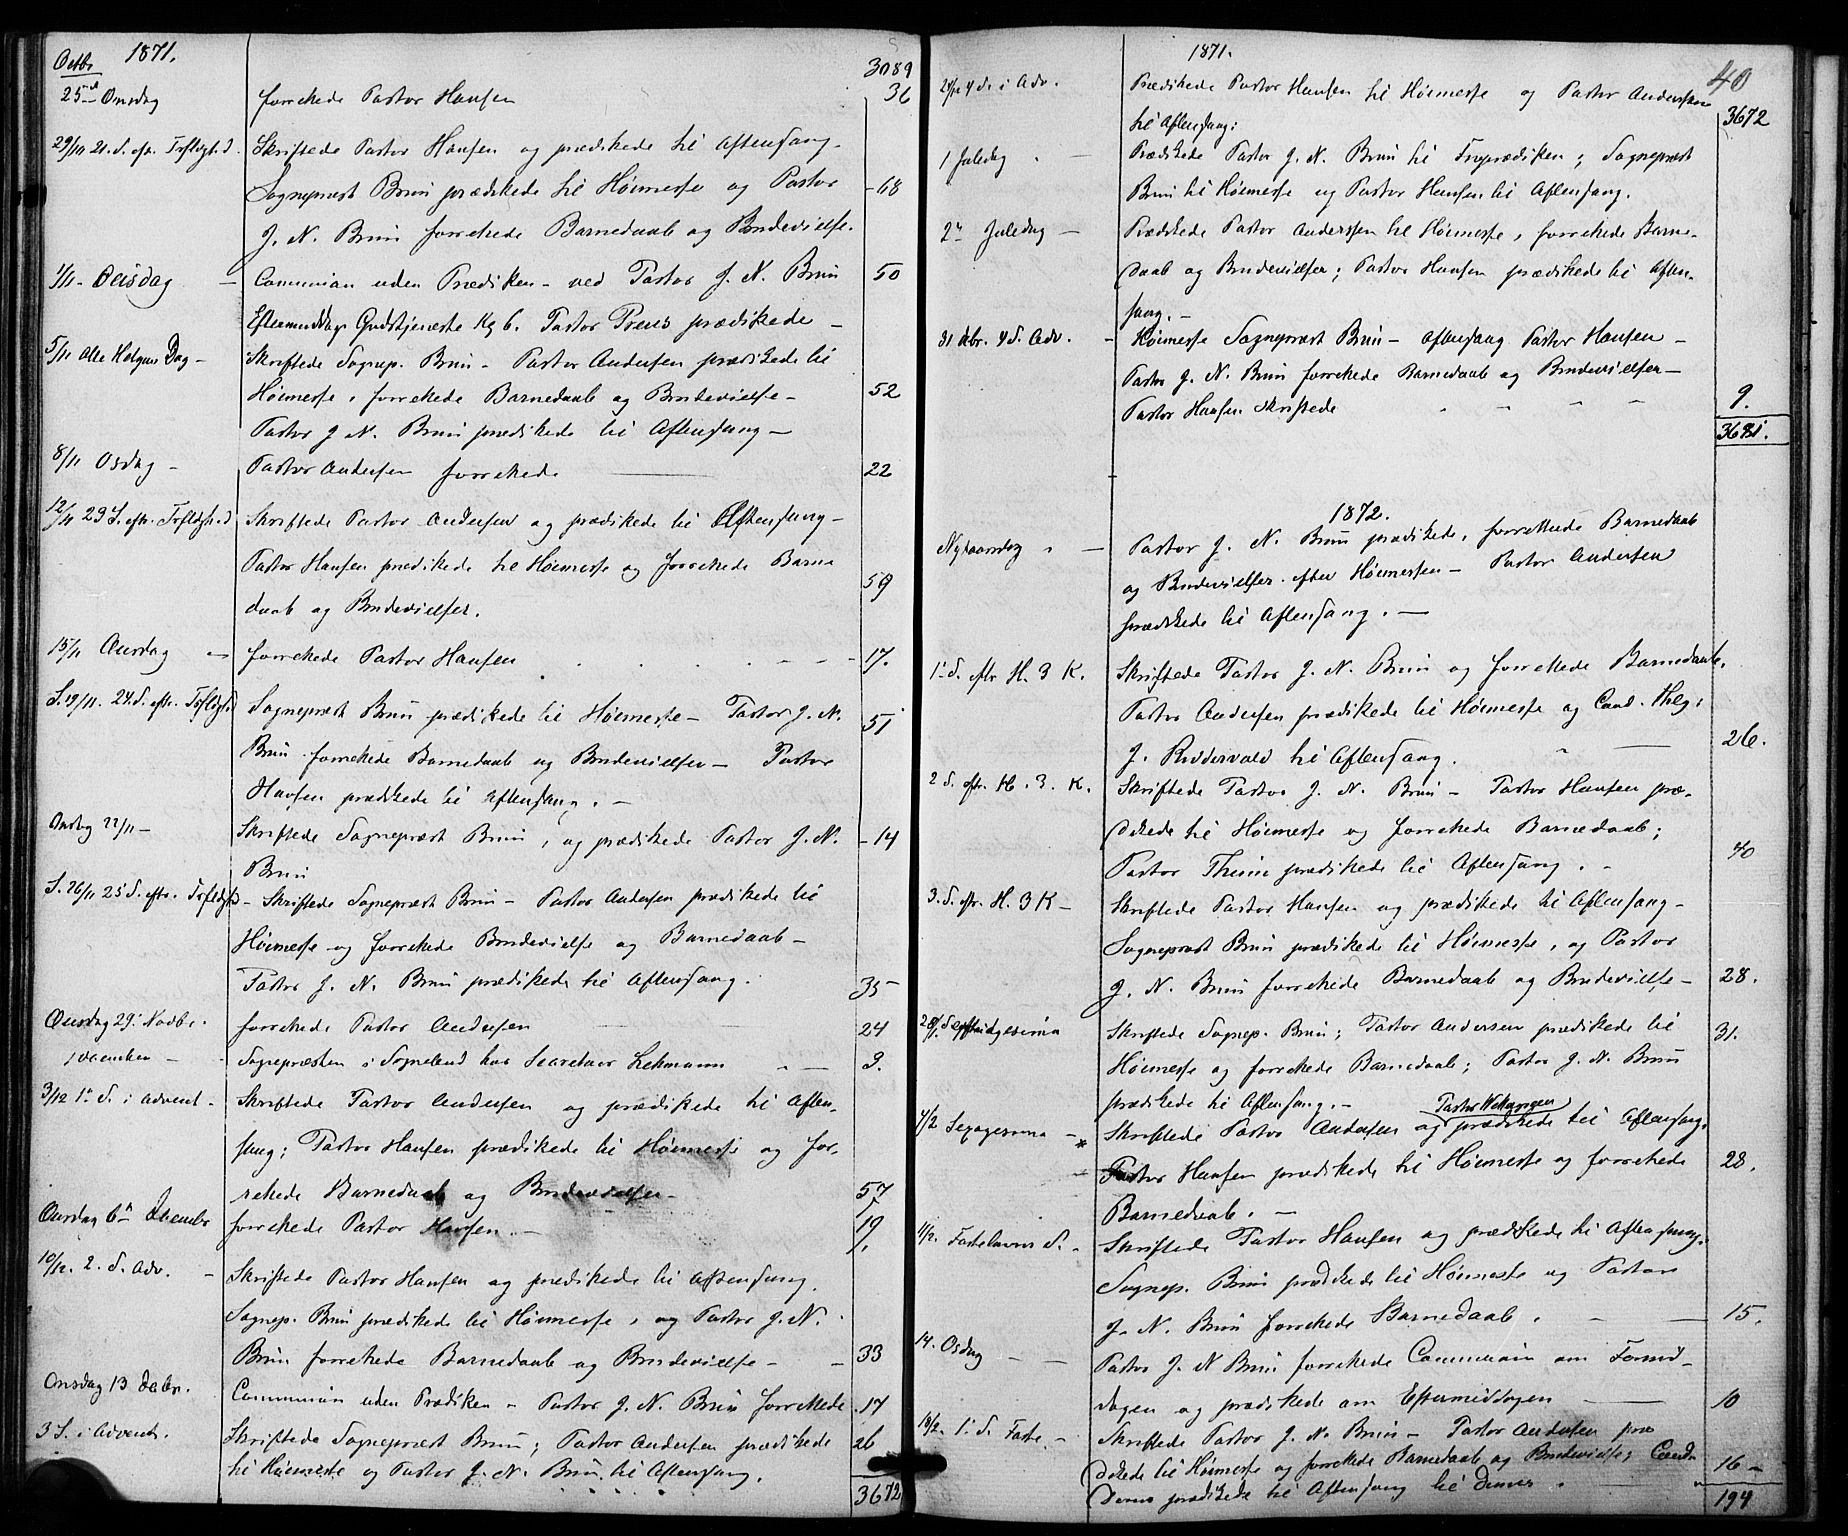 Octbr 1871. 3089
25nd Onsdag forrettede Pastor Hansen 36
29/10 21. S. eftr. Trefoldighd. Skriftede Pastor Hansen og prædikede til Aftensang -
Sognepræst Brun prædikede til Høimesse og Pastor - 68
J. N. Brun forrettede Barnedaab og Brudevielse.
1/11 - Onsdag - Communion uden Prædiken - ved Pastor J. N. Brun 50
Eftermiddags Gudstjeneste Kg 6. Pastor Preus prædikede -
5/11 Alle Helgens Dag - Skriftede Sognep. Brun - Pastor Andersen prædikede til
Høimesse, forrettede Barnedaab og Brudevielse - 52
Pastor J. N. Brun prædikede til Aftensang -
8/11 Osdag - Pastor Andersen forrettede 22
12/11 23 S. eftr. Trefoldigh.d Skriftede Pastor Andersen og prædikede til Aftensang -
Pastor Hansen prædikede til Høimesse og forrettede Barne 59
daab og Brudevielser.
15/11 Onsdag - forrettede Pastor Hansen 17.
S. 19/11. 24. S. eftr. Trefoldighd Sognepræst Brun prædikede til Høimesse - Pastor J. N. 51
Brun forrettede Barnedaab og Brudevielser - Pastor
Hansen prædikede til Aftensang. -
Onsdag 22/11 - Skriftede Sognepræst Brun, og prædikede Pastor J. N. - 14
Brun
S. 26/11 25 S. eftr. Trefoldighd - Skriftede Sognepræst Brun - Pastor Andersen prædikede til
Høimesse og forrettede Brudevielse og Barnedaab -
Pastor J. N. Brun prædikede til Aftensang. 35
Onsdag 29. Novbr. forrettede Pastor Andersen 24
1 December - Sognepræsten i Sognebud hos Secretair Lehmann 3.
3/12 1ste S. i Advent - Skriftede Pastor Andersen og prædikede til Aften-
sang; Pastor Hansen prædikede til Høimesse og for-
rettede Barnedaab og Brudevielser - 57
Onsdag 6te December forrettede Pastor Hansen. - 19.
10/12. 2. S. Adv. - Skriftede Pastor Hansen og prædikede til Aftensang.
Sognep. Brun prædikede til Høimesse, og Pastor J. N.
Brun forrettede Barnedaab og Brudevielse - 33
Onsdag 13 Decbr. Communion uden Prædiken - Pastor J. N. Brun forrettede 17
3 S. i Advent. Skriftede Sognepræst Brun; Pastor Andersen prædikede 26
til Høimesse og Pastor J. N. Brun til Aftensang.
3672
1871. 40
24/12 4 S. i Adv. Prædikede Pastor Hansen til Høimesse og Pastor Andersen 3672
til Aftensang;
1 Juledag - Prædikede Pastor J. N. Brun til Froprædiken; Sognepræst
Brun til Høimesse og Pastor Hansen til Aftensang.
2n Juledag - Prædikede Pastor Andersen til Høimesse, forrettede Barne-
daab og Brudevielser; Pastor Hansen prædikede til Aften-
sang. -
31 Dbr. 4 S. Adv. - Høimesse Sognepræst Brun - Aftensang Pastor Hansen -
Pastor J. N. Brun forrettede Barnedaab og Brudevielser -
Pastor Hansen Skriftede 9.
3681.
1872.
Nytaarsdag - Pastor J. N. Brun prædikede, forrettede Barnedaab
og Brudevielser efter Høimessen - Pastor Andersen
prædikede til Aftensang. -
1. S. eftr H. 3 K. Skriftede Pastor J. N. Brun og forrettede Barnedaab.
Pastor Andersen prædikede til Høimesse og Cand. Theol:
J. Riddervold til Aftensang. 26.
2 S. eftr. H. 3. K. Skriftede Pastor J. N. Brun - Pastor Hansen præ-
dikede til Høimesse og forrettede Barnedaab;
Pastor Thiim prædikede til Aftensang. - 40
3. S. eftr. H. 3 K - Skriftede Pastor Hansen og prædikede til Aftensang -
Sognepræst Brun prædikede til Høimesse, og Pastor
J. N. Brun forrettede Barnedaab og Brudevielse - 28.
28/1 Septuagesima Skriftede Sognep. Brun; Pastor Andersen prædikede til 31.
Høimesse og forrettede Barnedaab; Pastor J. N. Brun
prædikede til Aftensang. -
4/2 Sexagesima - * Skriftede Pastor Andersen og prædikede til Aftensang.
Pastor Hansen prædikede til Høimesse og forrettede 28.
Barnedaab. -
11/2. Fastelavns S. - Skriftede Pastor Hansen og prædikede til Aftensang.
Sognep. Brun prædikede til Høimesse og Pastor
J. N. Brun forrettede Barnedaab. 15.
14. Osdag - - Pastor J. N Brun forrettede Communion om Formid-
dagen og prædikede om Eftermiddagen 10
18/2. 1. S. Faste. - Skriftede Pastor J. N. Brun - Pastor Andersen præ
dikede til Høimesse og forrettede Barnedaab og Brudevielse; Cand. 16 -
prædikede til Aftensang
194